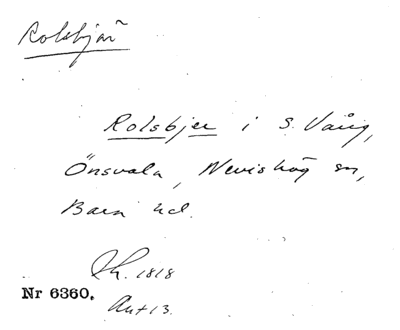 Rolsbjär
Rolsbjer i S. Vång,
Önsvala, Nevishög sn,
Bara hd.
Sk. 1818
Nr 6360.
Ant 13.